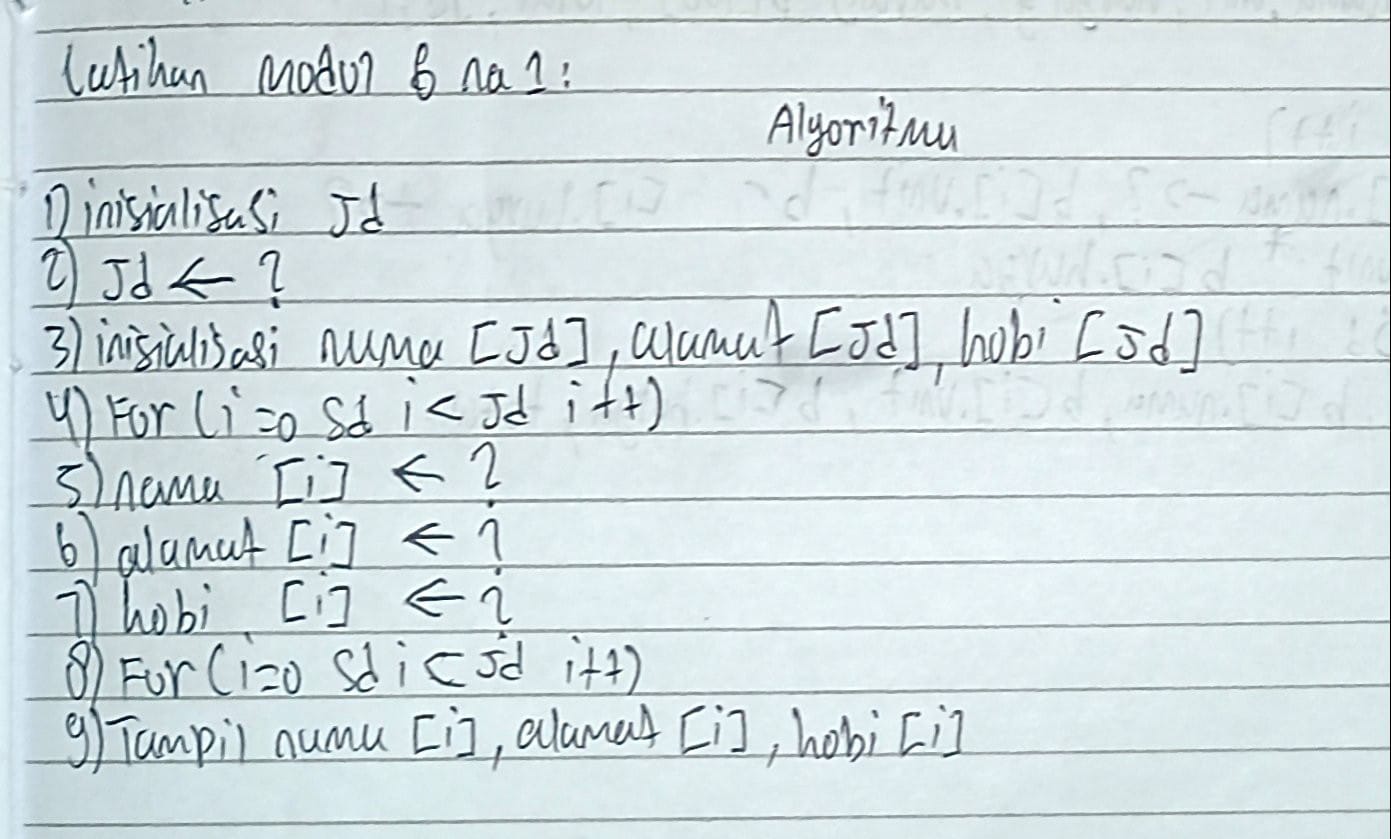 Latihan modul 6 no 1:
Algoritma
1) inisialisasi Jd
2) Jd ← ?
3) inisialisasi nama [Jd], alamat [Jd], hobi [Jd]
4) For (i=0 sd i < Jd i++)
5) nama [i] ← ?
6) alamat [i] ← ?
7) hobi [i] ← ?
8) For (i=0 sd i < Jd i++)
9) Tampil nama [i], alamat [i], hobi [i]